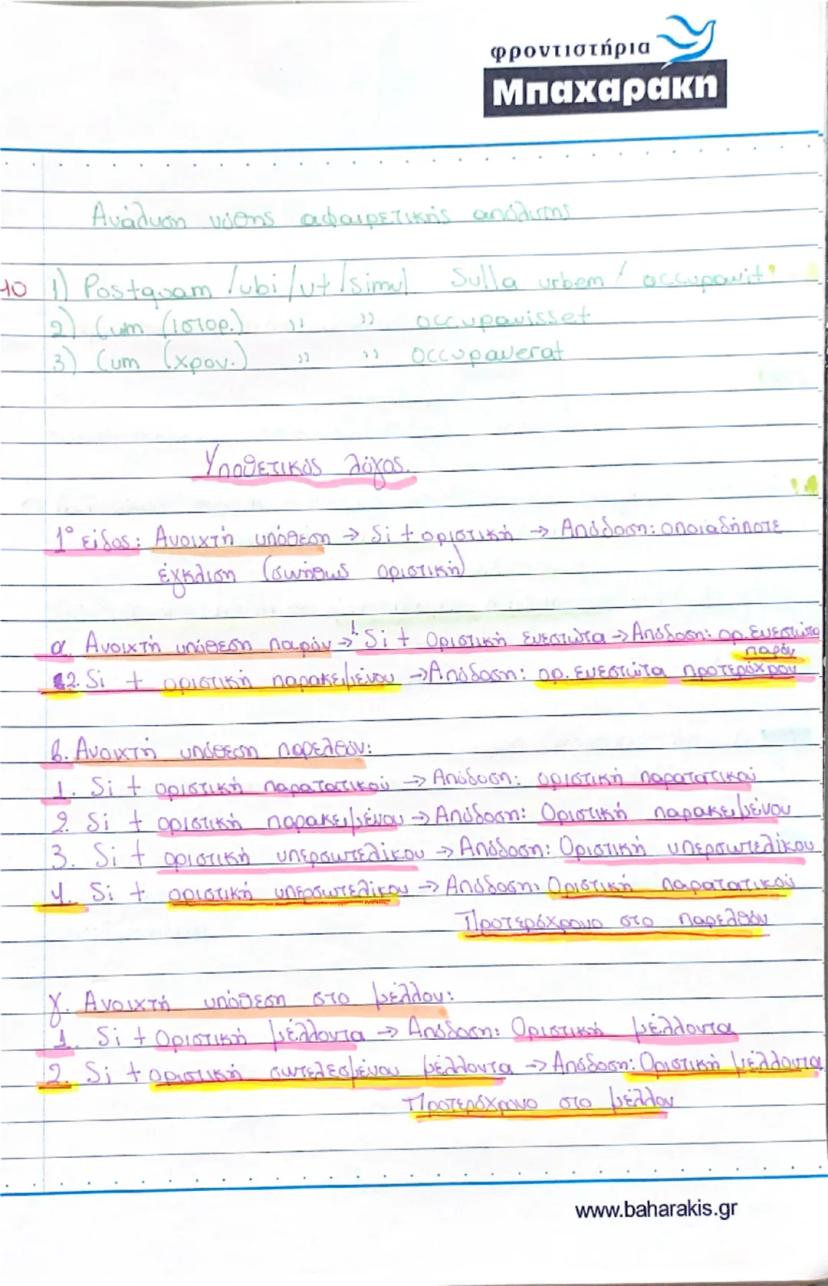 φροντιστήρια
Μπαχαράκη
Ανάλυση νόθης αφαιρετικής απόλυτης
10 1) Postquam /ubi/ut/simul Sulla urbem / occupavit
2) Cum (ιστορ.) ,, ,, occupavisset
3) Cum (χρον.) ,, ,, occupaverat
Υποθετικός λόγος.
1° είδος: Ανοιχτή υπόθεση → Si + οριστική → Απόδοση: οποιαδήποτε
έγκλιση (συνήθως οριστική)
α. Ανοιχτή υπόθεση παρόν → 1. Si + Οριστική ενεστώτα → Απόδοση: ορ. ενεστώτα
παρόν
2. Si + οριστική παρακειμένου → Απόδοση: ορ. ενεστώτα προτερόχρον
β. Ανοιχτή υπόθεση παρελθόν:
1. Si + οριστική παρατατικού → Απόδοση: οριστική παρατατικού
2. Si + οριστική παρακειμένου → Απόδοση: Οριστική παρακειμένου
3. Si + οριστική υπερσυντελίκου → Απόδοση: Οριστική υπερσυντελίκου
4. Si + οριστική υπερσυντελίκου → Απόδοση: Οριστική παρατατικού
Προτερόχρονο στο παρελθόν
γ. Ανοιχτή υπόθεση στο μέλλον:
1. Si + Οριστική μέλλοντα → Απόδοση: Οριστική μέλλοντα
2. Si + οριστική συντελεσμένου μέλλοντα → Απόδοση: Οριστική μέλλοντα
Προτερόχρονο στο μέλλον
www.baharakis.gr